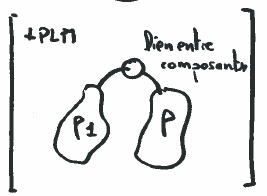 +PLM
Lien entre
composants
P1
P